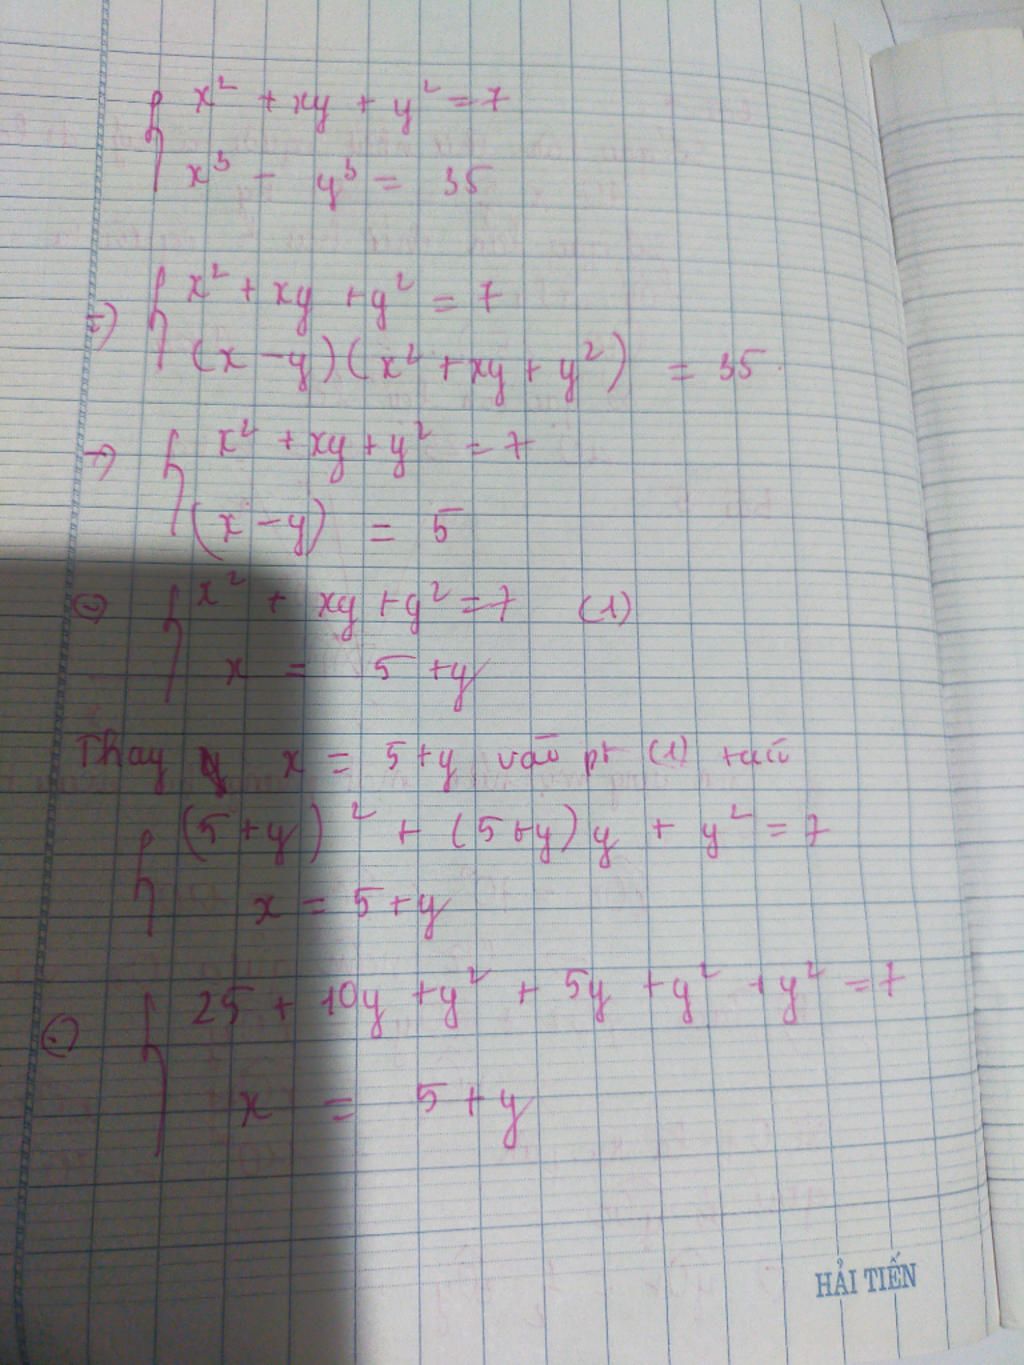 { x² + xy + y² = 7
x³ - y³ = 35
=) { x² + xy + y² = 7
(x - y)(x² + xy + y²) = 35
{ x² + xy + y² = 7
(x - y) = 5
{ x² + xy + y² = 7 (1)
x = 5 + y
Thay x = 5 + y vào pt (1) ta có
{ (5 + y)² + (5 + y) y + y² = 7
x = 5 + y
{ 25 + 10y + y² + 5y + y² + y² = 7
x = 5 + y
HẢI TIẾN